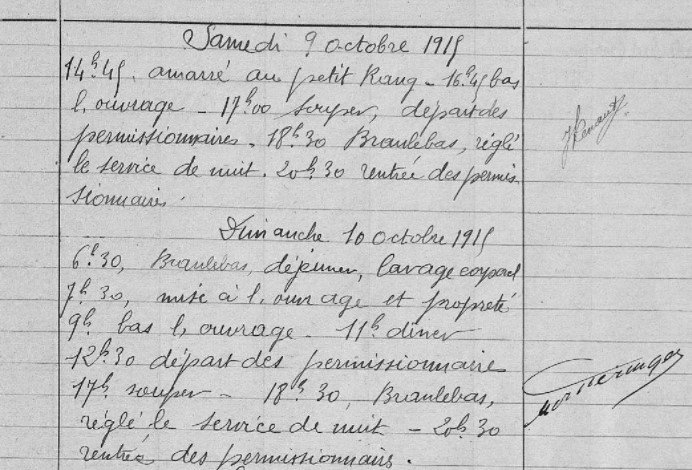 Samedi 9 octobre 1915
14h.45. amarré au petit Rang - 16h.45 bas
l'ouvrage - 17h00 souper, départ des
permissionnaires. 18h30 Branlebas, réglé
le service de nuit. 20h.30 rentrée des permis-
sionnaires.
Dimanche 10 octobre 1915
6h.30, Branlebas, déjeuner, lavage corporel
7h.30, mise à l'ouvrage et propreté
9h. bas l'ouvrage - 11h diner
12h.30 départ des permissionnaire
17h. souper - 18h 30, Branlebas,
réglé le service de nuit - 20h.30
rentrée des permissionnaire.